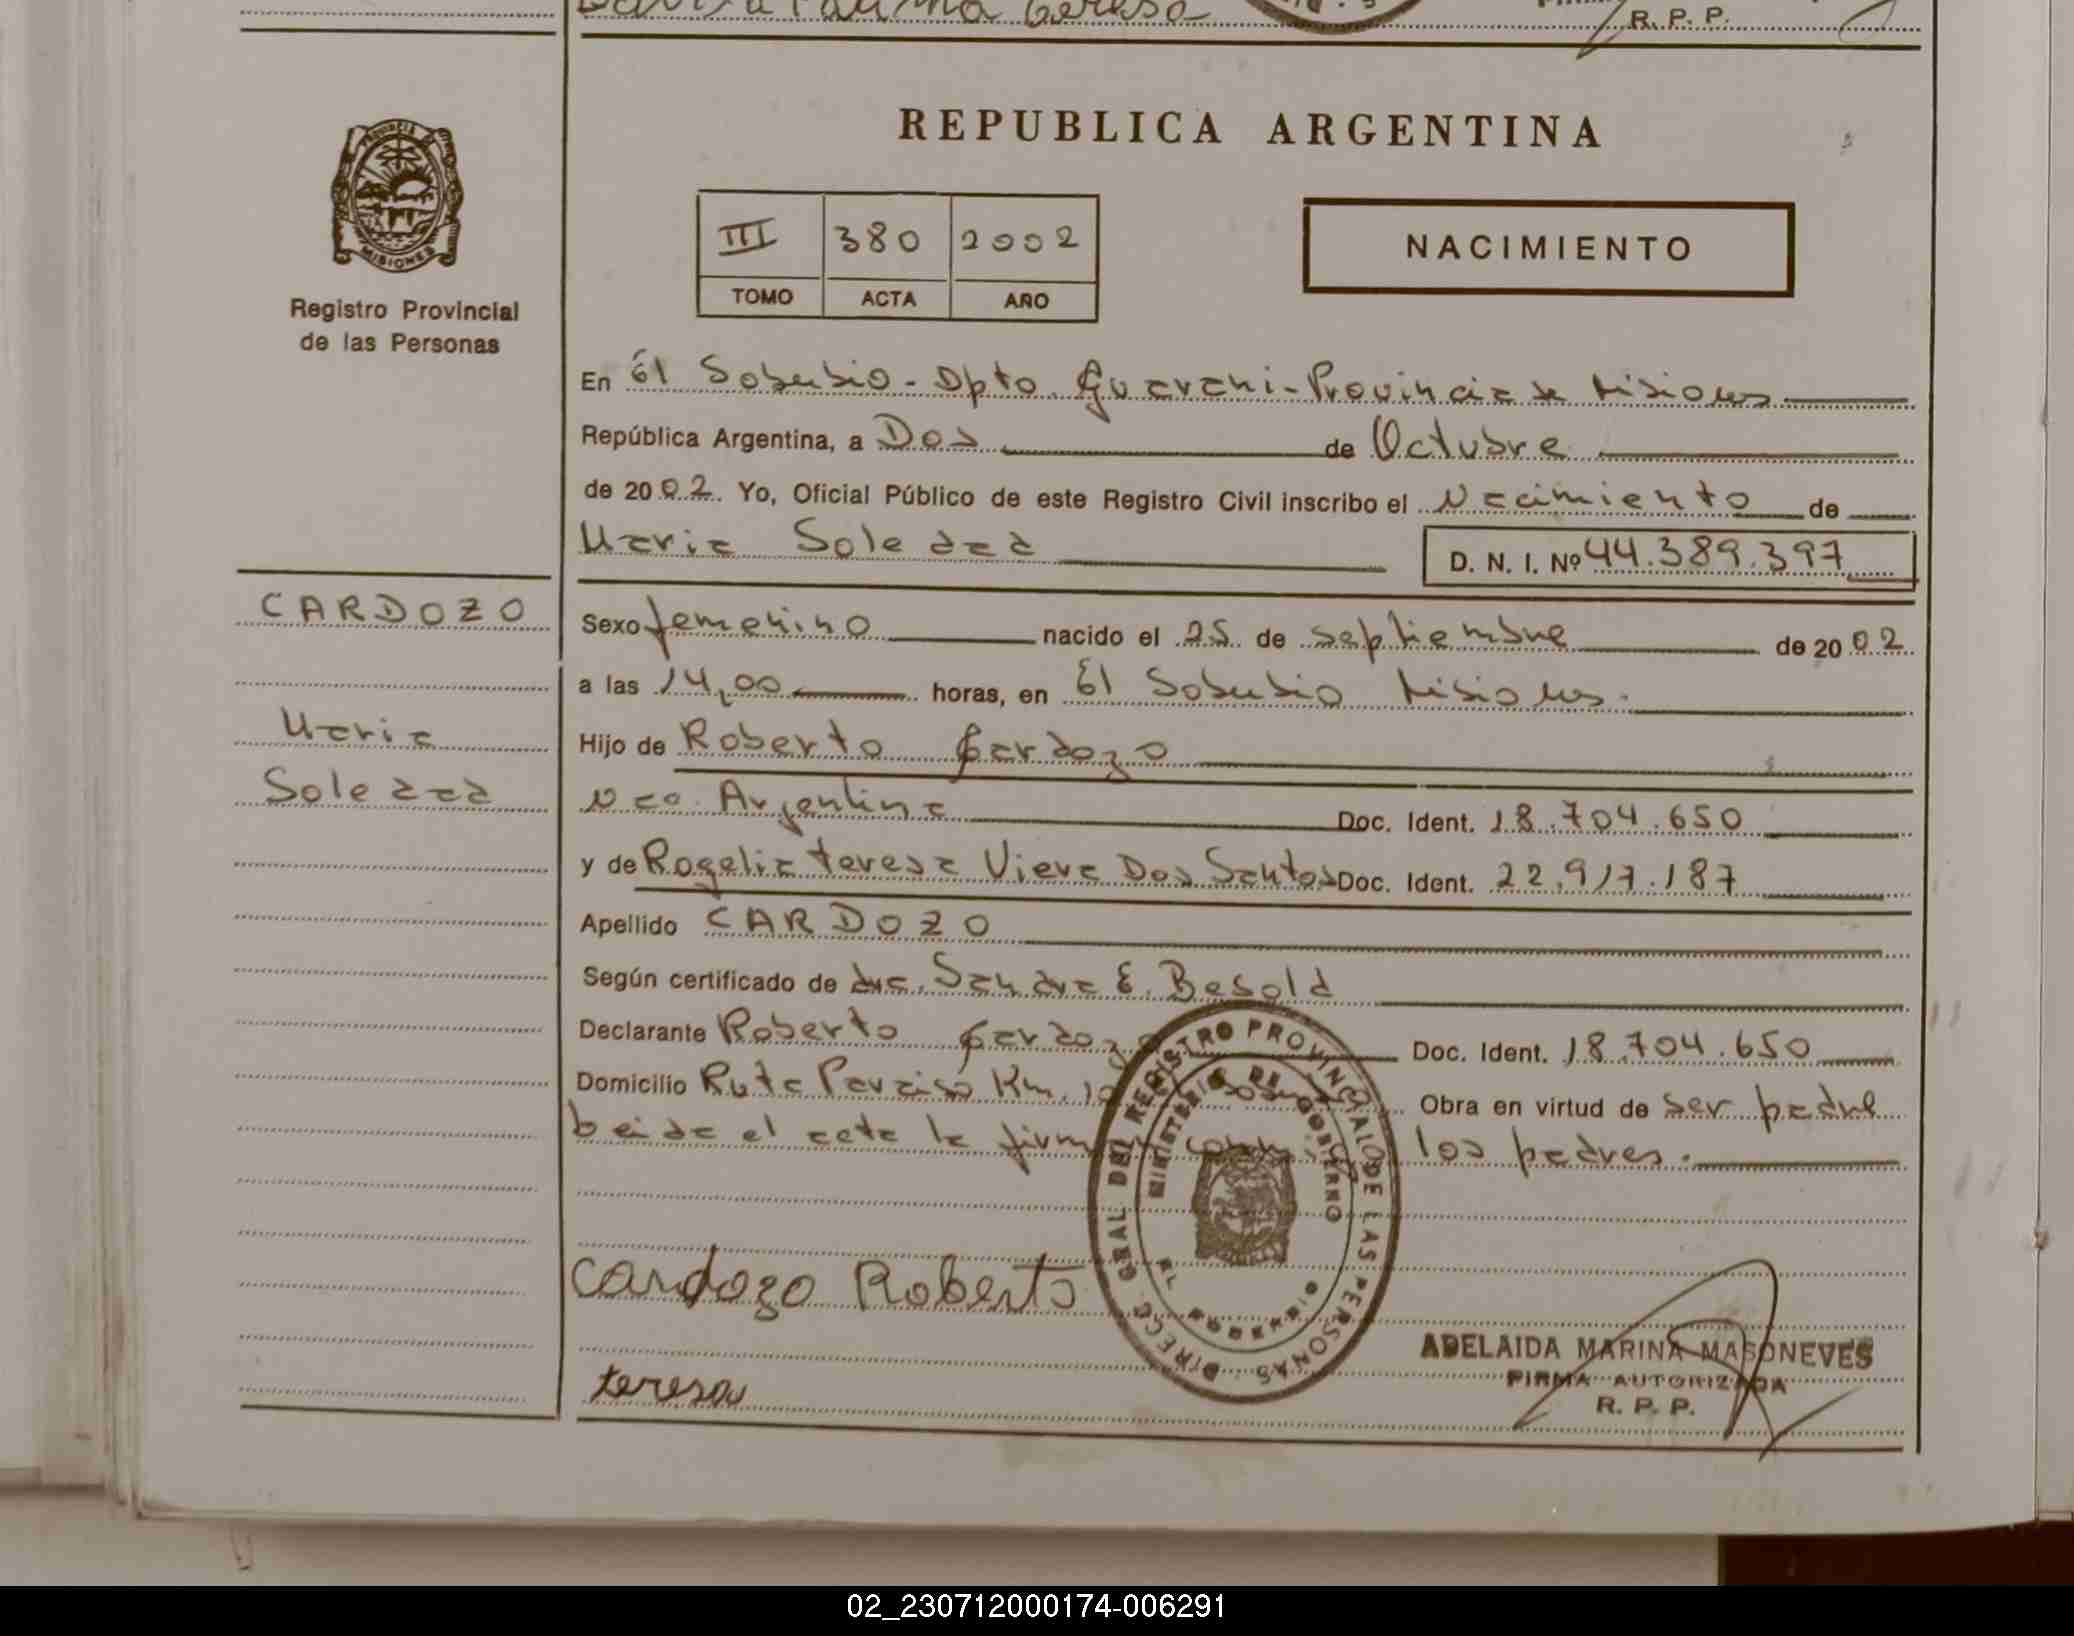 Teresa
R. P. P.
PROVINCIA
MISIONES
Registro Provincial
de las Personas
REPUBLICA ARGENTINA
III 380 2002
TOMO ACTA AÑO
NACIMIENTO
En El Soberbio - Dpto. Guarani - Provincia de Misiones
República Argentina, a Dos de Octubre
de 2002. Yo, Oficial Público de este Registro Civil inscribo el Nacimiento de
Maria Soledad D. N. I. Nº 44.389.397
CARDOZO
Maria
Soledad
Sexo femenino nacido el 25 de septiembre de 2002
a las 14,00 horas, en El Soberbio Misiones.
Hijo de Roberto Cardozo
Nac. Argentina Doc. Ident. 18.704.650
y de Rogelia teresa Viera Dos Santos Doc. Ident. 22.917.187
Apellido CARDOZO
Según certificado de dra. Sandra E. Besold
Declarante Roberto Cardozo Doc. Ident. 18.704.650
Domicilio Ruta Paraiso Km. Obra en virtud de ser padre
beida el acta la los padres.
DIRECC. GRAL DEL REGISTRO PROVINCIAL DE LAS PERSONAS
MINISTERIO DE GOBIERNO
EL SOBERBIO
Cardozo Roberto
teresa
ADELAIDA MARINA MASONEVES
FIRMA AUTORIZADA
R. P. P.
02_230712000174-006291